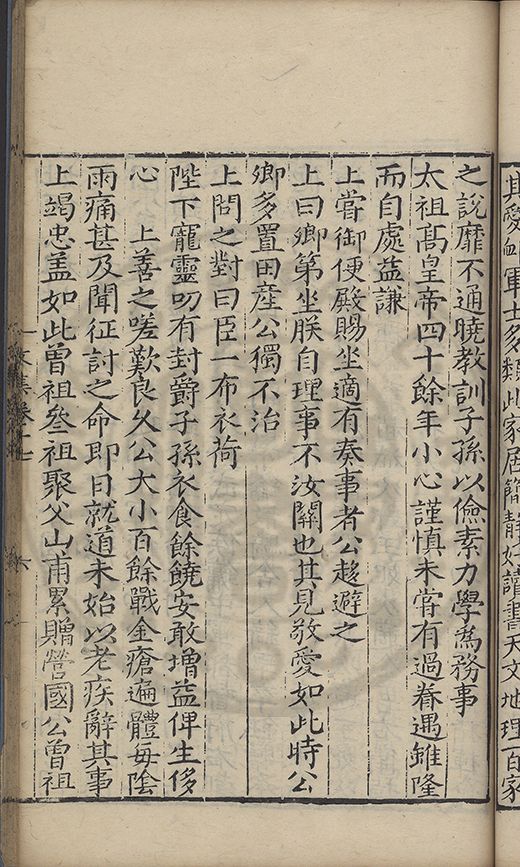 其愛衈軍士多類此家居簡靜好讀書天文地理百家
之說靡不通曉教訓子孫以儉素力學為務事
太祖高皇帝四十餘年小心謹慎未嘗有過眷遇雖隆
而自處益謙
上嘗御便殿賜坐適有奏事者公趍避之
上曰卿第坐朕自理事不汝關也其見敬愛如此時公
卿多置田産公獨不治
上問之對曰臣一布衣荷
陛下寵靈叨有封爵子孫衣食餘饒安敢增益俾生侈
心 上善之嗟歎良久公大小百餘戰金瘡遍體每陰
雨痛甚及聞征討之命即日就道未始以老疾辭其事
上竭忠盖如此曾祖叄祖聚父山甫累贈營國公曾祖